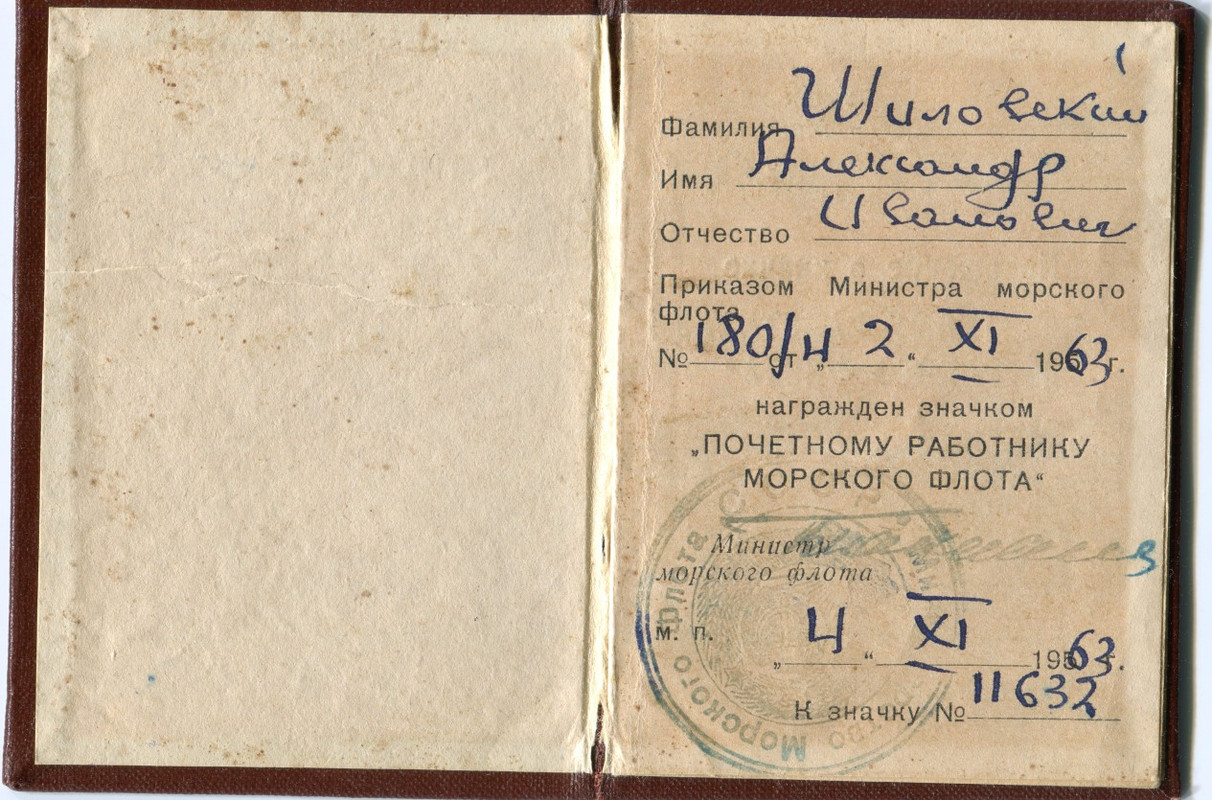 Фамилия Шиловский
Имя Александр
Отчество Иванович
Приказом Министра морского
флота
№ 180/н от „ 2 “ XI 1963 г.
награжден значком
„ПОЧЕТНОМУ РАБОТНИКУ
МОРСКОГО ФЛОТА“
Министр
морского флота
М. П.
„ 4 “ XI 1963 г.
К значку № 11632
Морского Флота